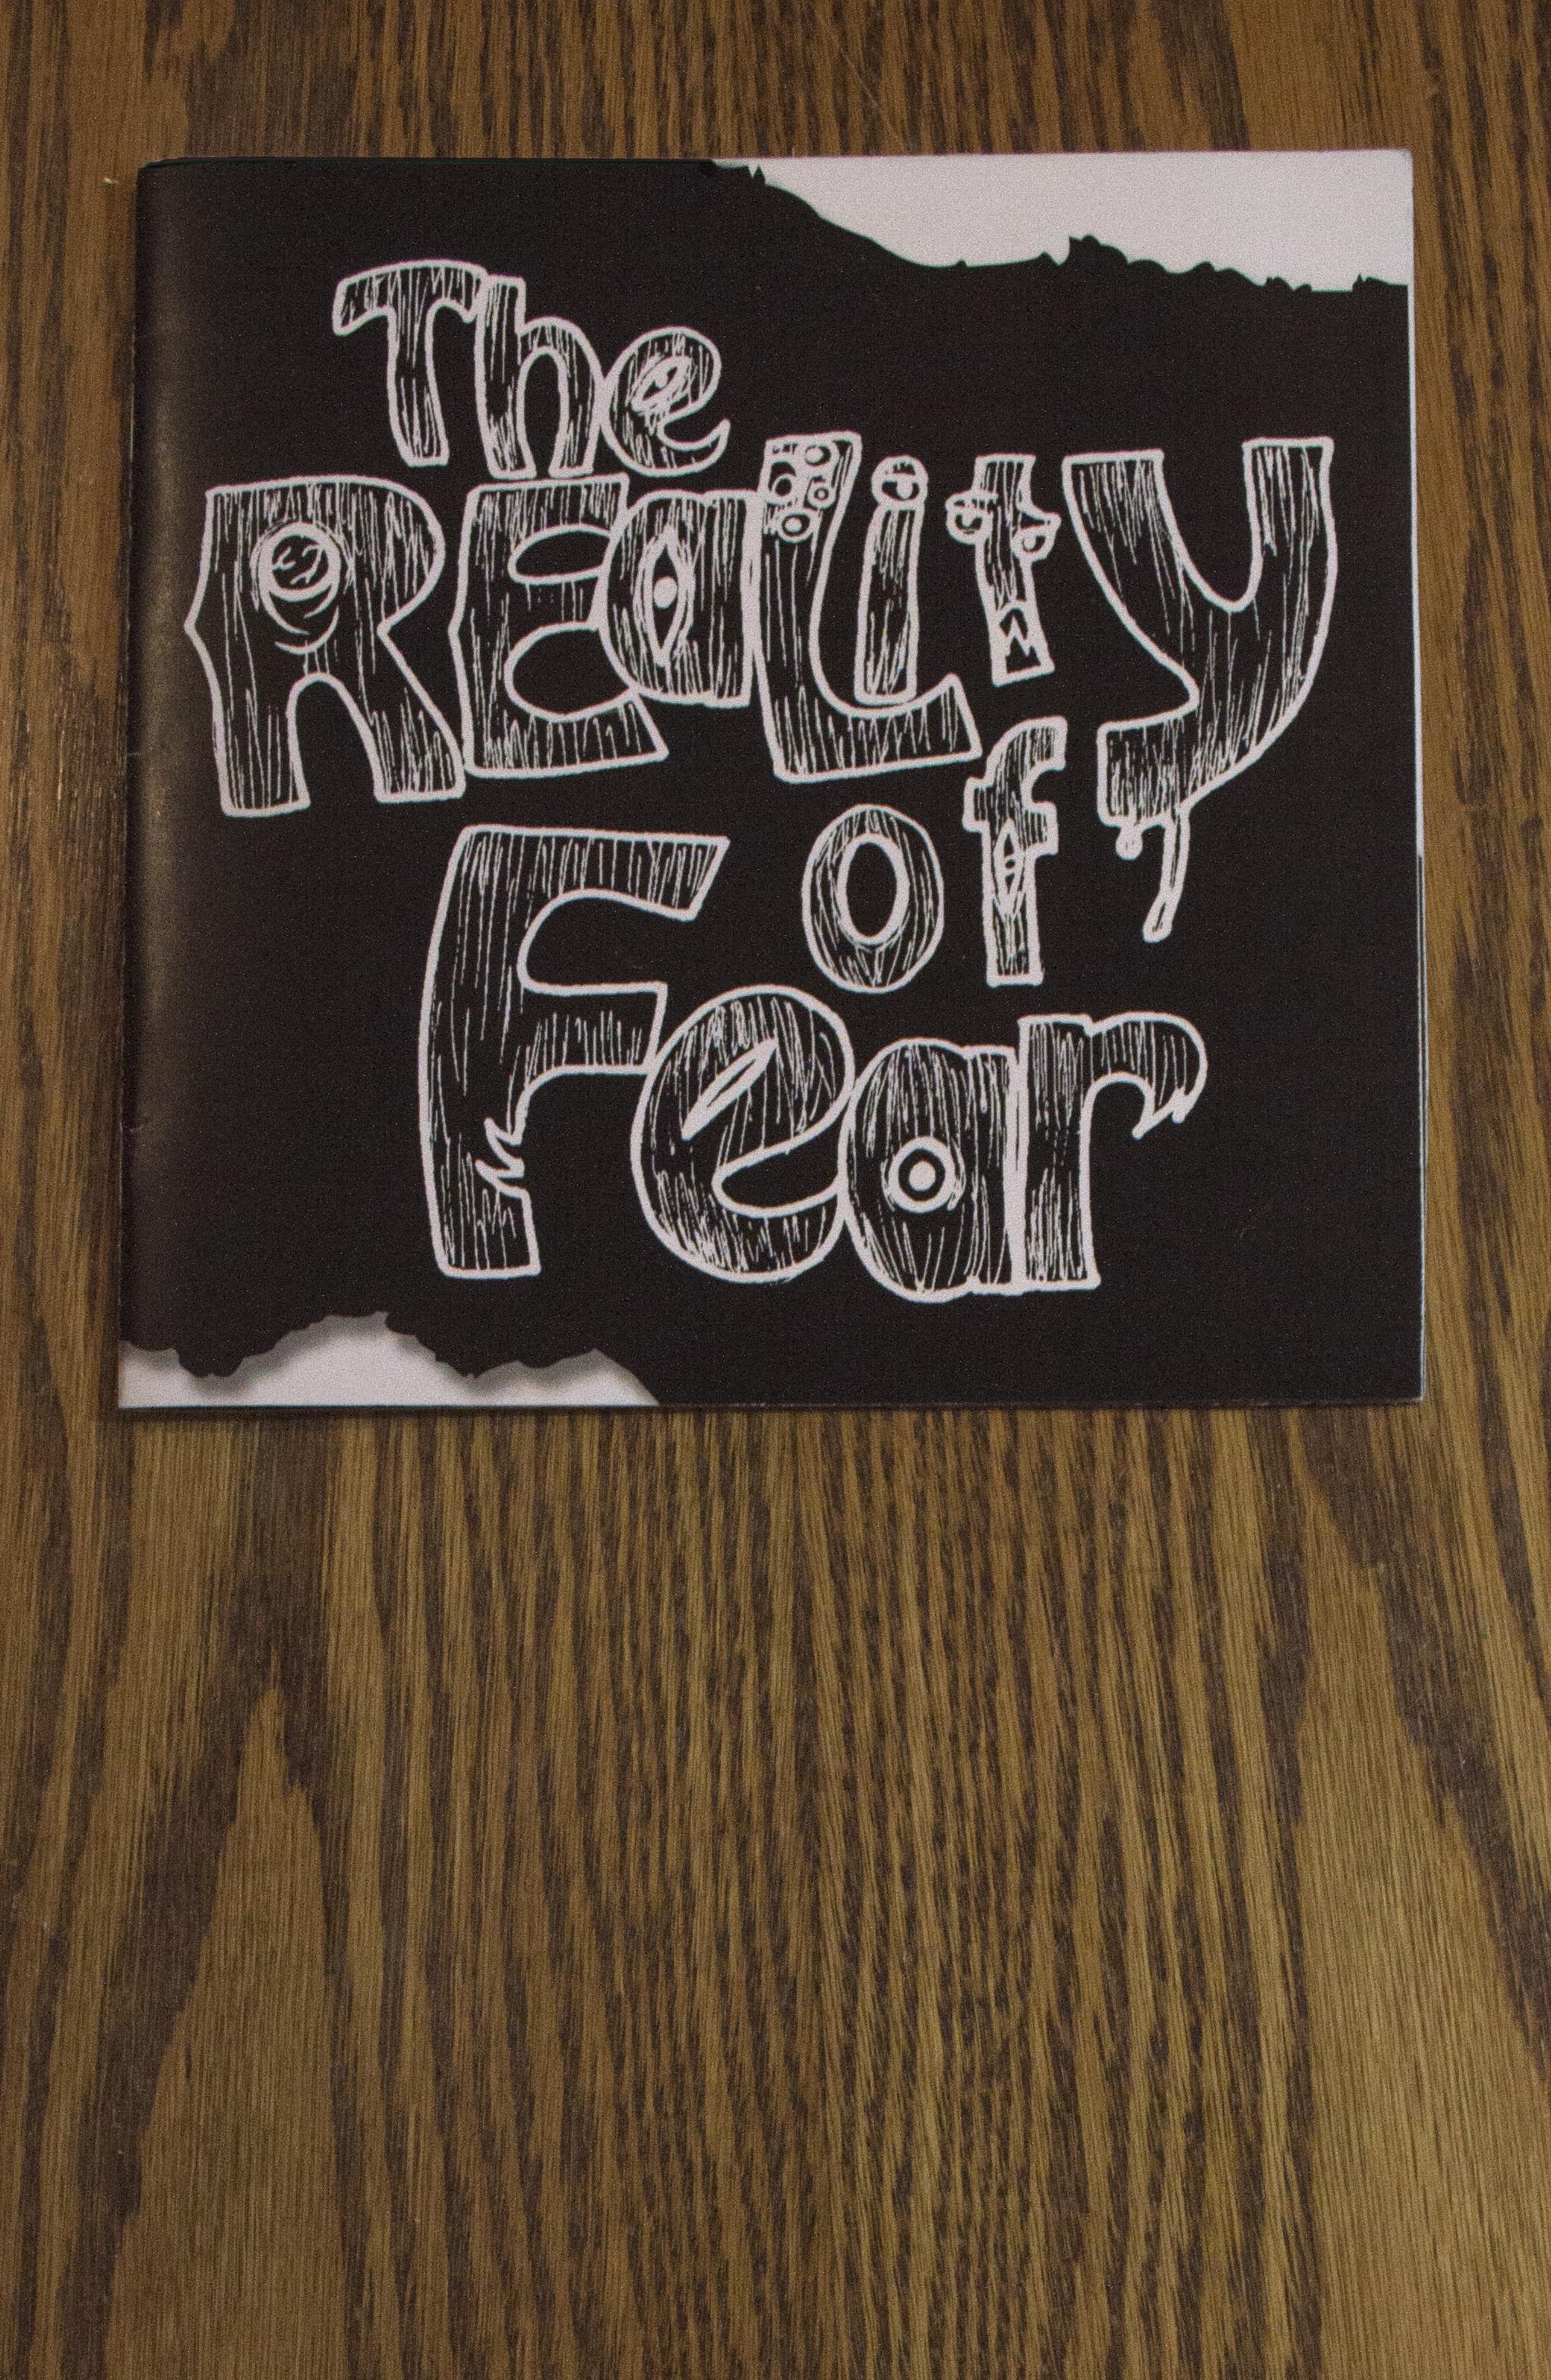 The
REaLity
of
Fear